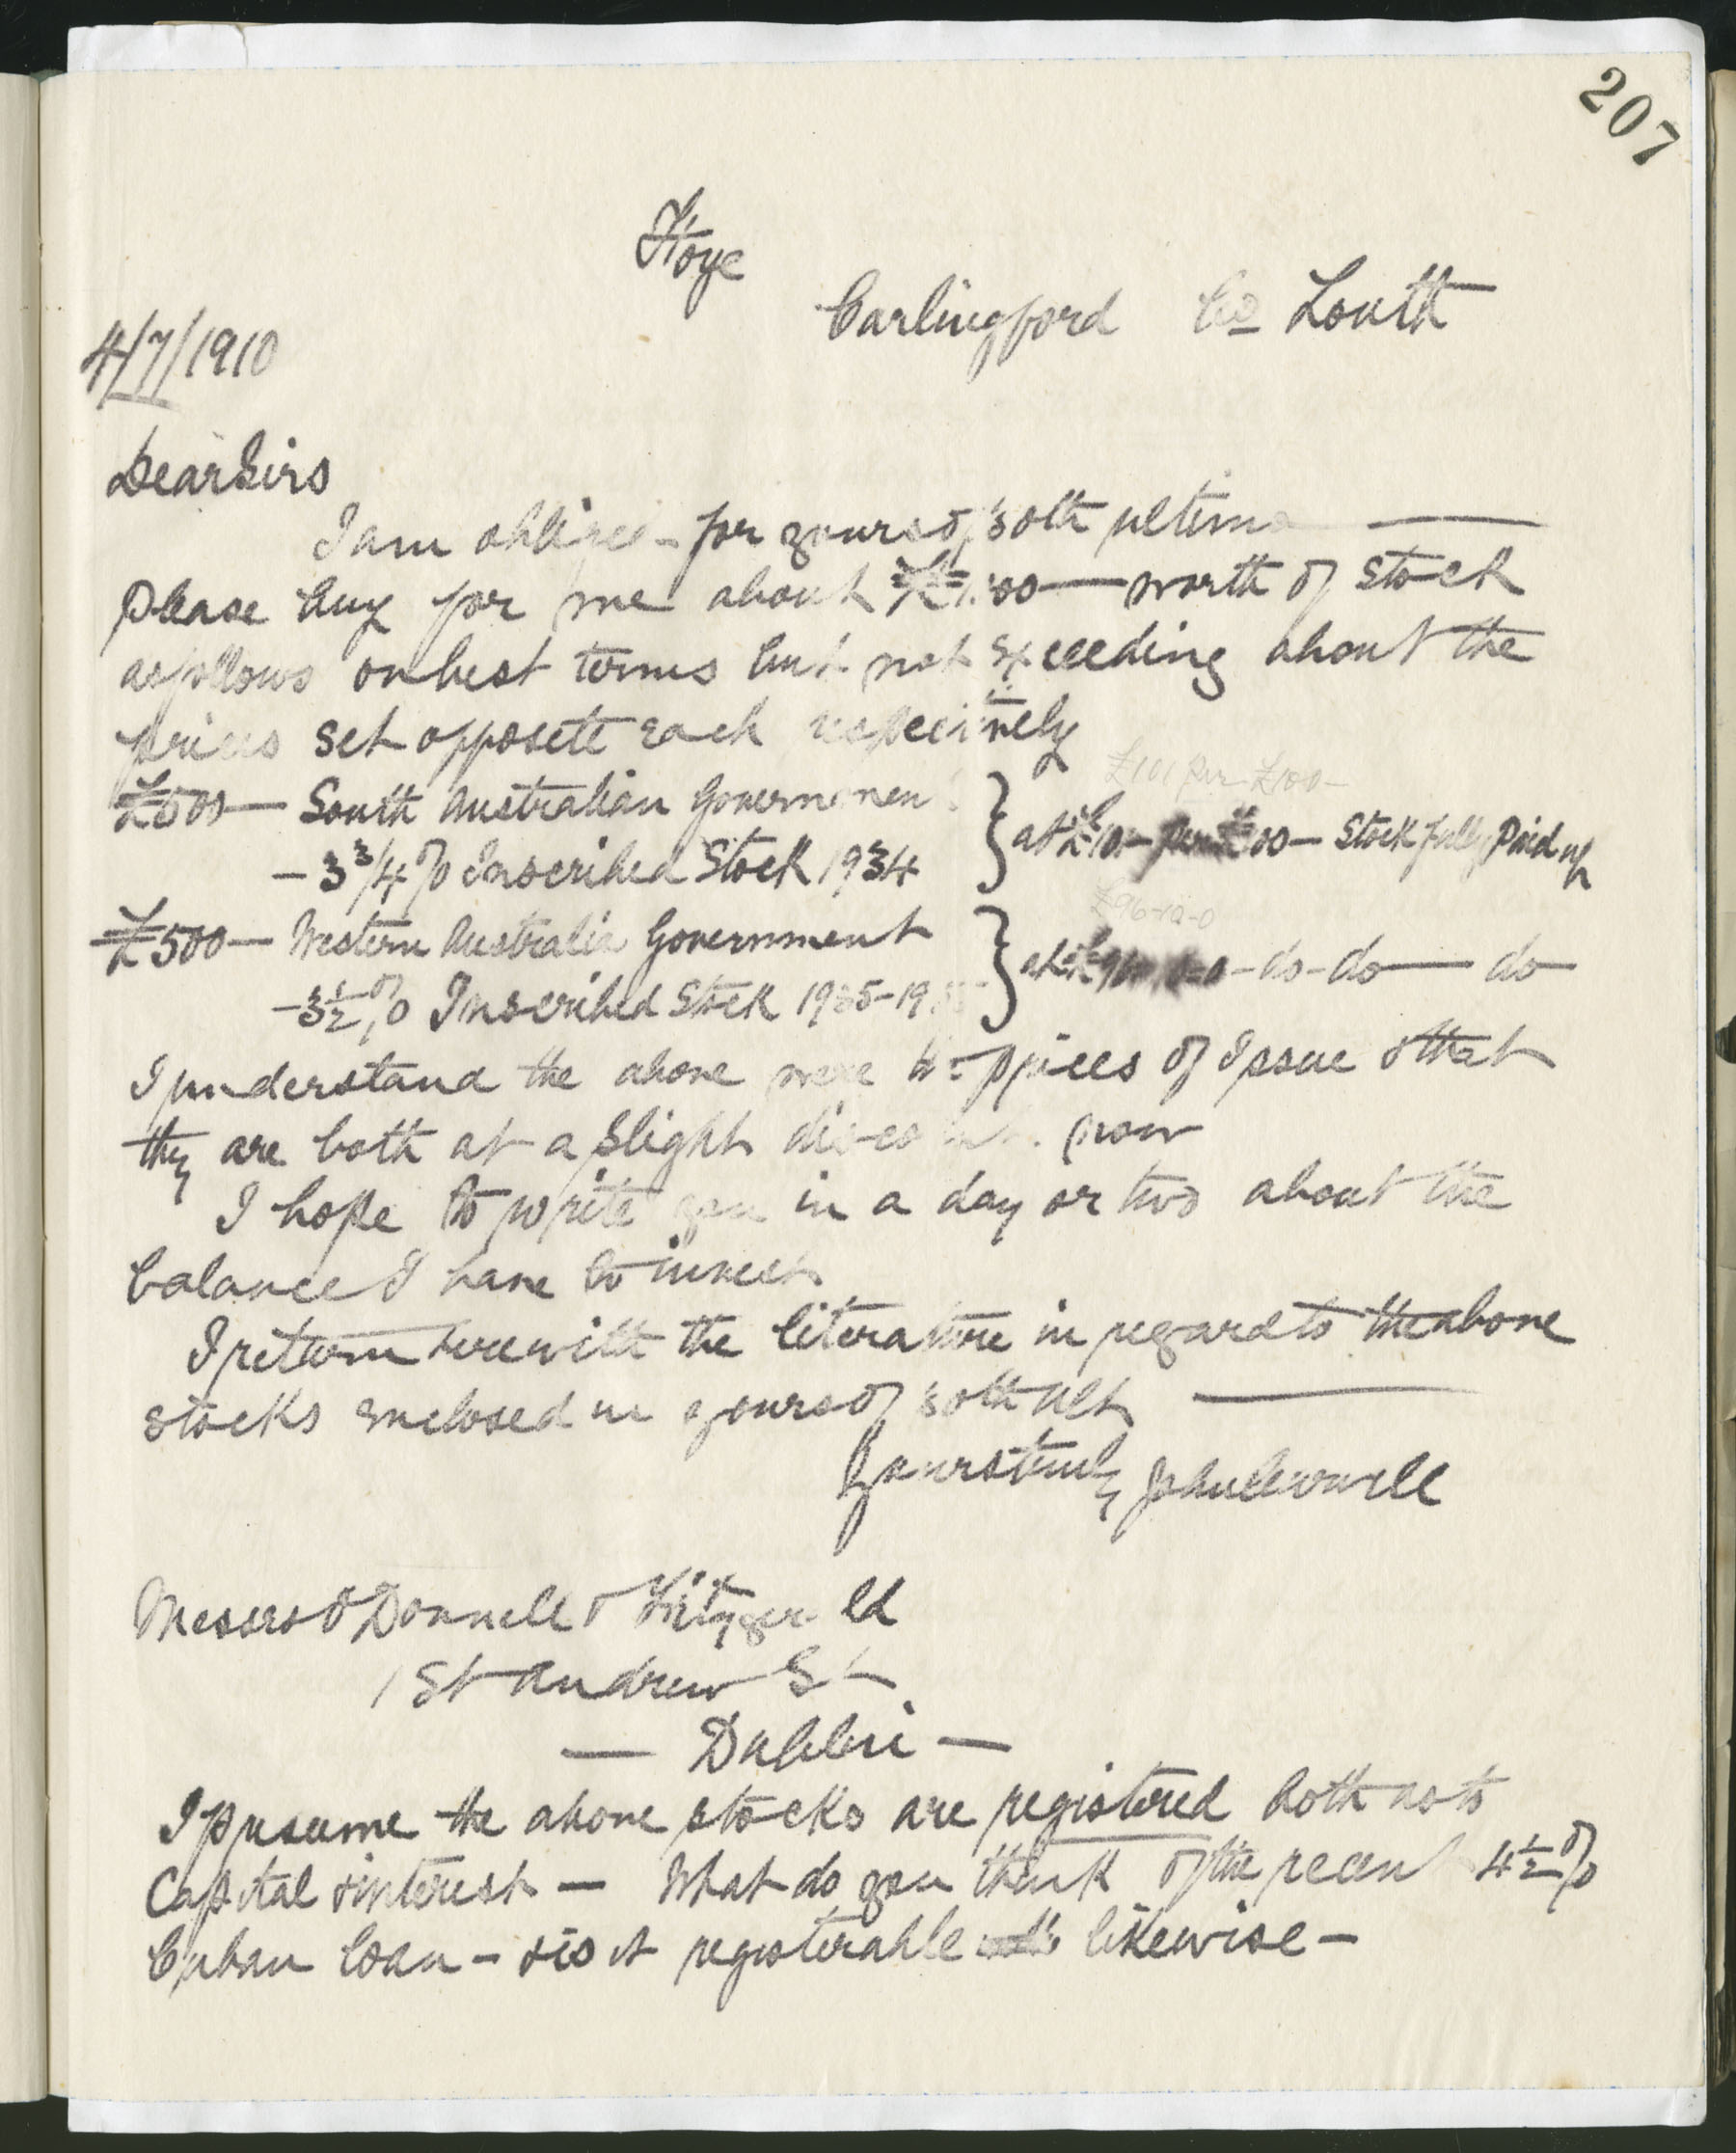 207
Carlingford Co Louth
4/7/1910
Dear Sirs
I am obliged - for yours of 30th ultimo —
Please buy for me about £ worth of Stock
as follows on best terms but not exceeding about the
prices set opposite each respectively
£101 per £100-
£500— South Australian Government
at £101- per £100— Stock fully Paid up
- 3 3/4 % Inscribed Stock 1934
£96-10-0
£500— Western Australia Government
at £96-10-0 - do - do — do
- 3 1/2 % Inscribed Stock 1935-19
I understand the above were the prices of Issue & that
they are both at a slight discount now
I hope to write you in a day or two about the
balance I have to invest
I return herewith the literature in regard to the above
stocks enclosed in yours of 30th ult —
Yours truly
Messrs O'Donnell & Fitzgerald
1 St Andrew St
— Dublin —
I presume the above stocks are registered both as to
Capital & interest — What do you think of the recent 4 1/2 %
Cuban loan - & is it registerable likewise —